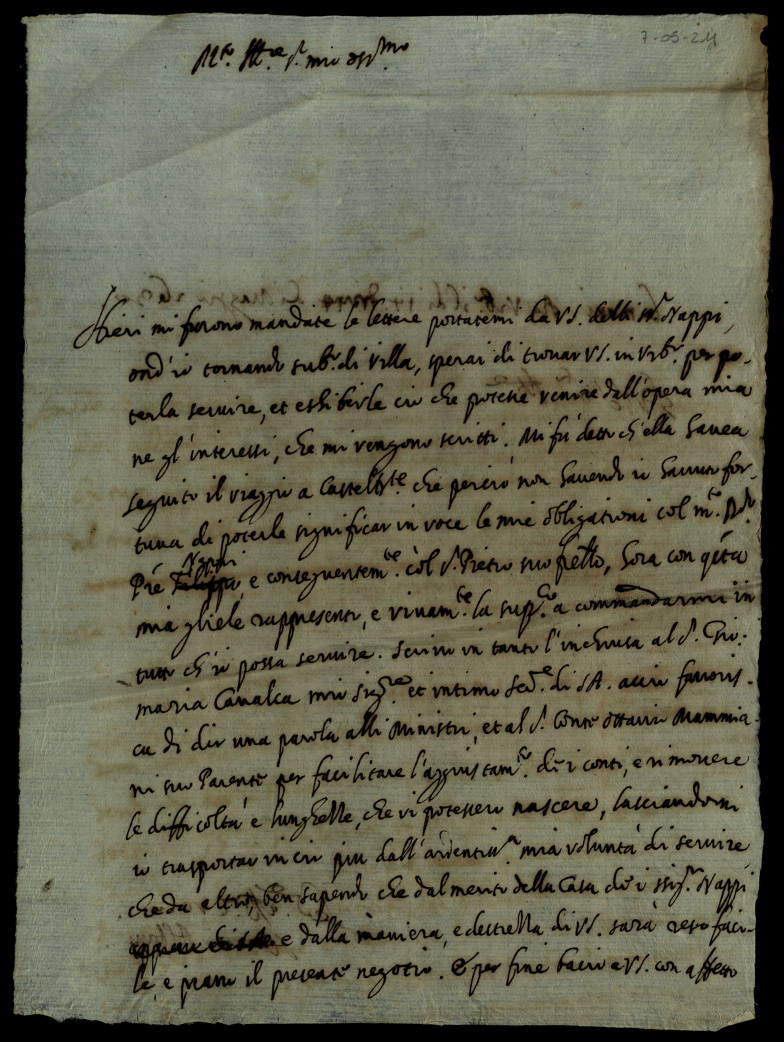 7-05-24
M.to Ill.re s.r mio oss.mo
Hieri mi furono mandate le lettere portatemi da VS. delli ss.ri Nappi,
ond'io tornando sub.o di villa, sperai di trovar VS. in Urb.o per po-
terla servire, et esshibirle ciò che potesse venire dall'opera mia
ne gl'interessi, che mi vengono scritti. Mi fù detto ch'ella havea
seguito il viaggio a Casteld.te che perciò non havendo io havuto for-
tuna di poterle significar in voce le mie obligationi col m.to
Pré Nappi, e conseguentem.te col s.r Pietro suo frello, hora con q.sta
mia gliele rappresento, e vivam.te la supp.co a commandarmi in
tutto ch'io possa servire. Scrivo in tanto l'inchiusa al s.r Gio:
maria Cavalca mio Sig.re et intimo Seg.o di SA. acciò favoris-
ca di dir una parola alli Ministri, et al s.r Conte Ottavio Mammia-
ni suo Parente per facilitare l'aggiustam.to de i conti, e rimovere
le difficoltà e lunghezze, che vi potessero nascere, lasciandomi
io trasportar in ciò più dall'ardentiss.ma mia volontà di servire
che da altro, ben sapendo che dal merito della Casa de i ssig.ri Nappi
e dalla maniera, e destrezza di VS. sarà reso faci-
le, e piano il presente negotio. E per fine bacio a VS. con affetto